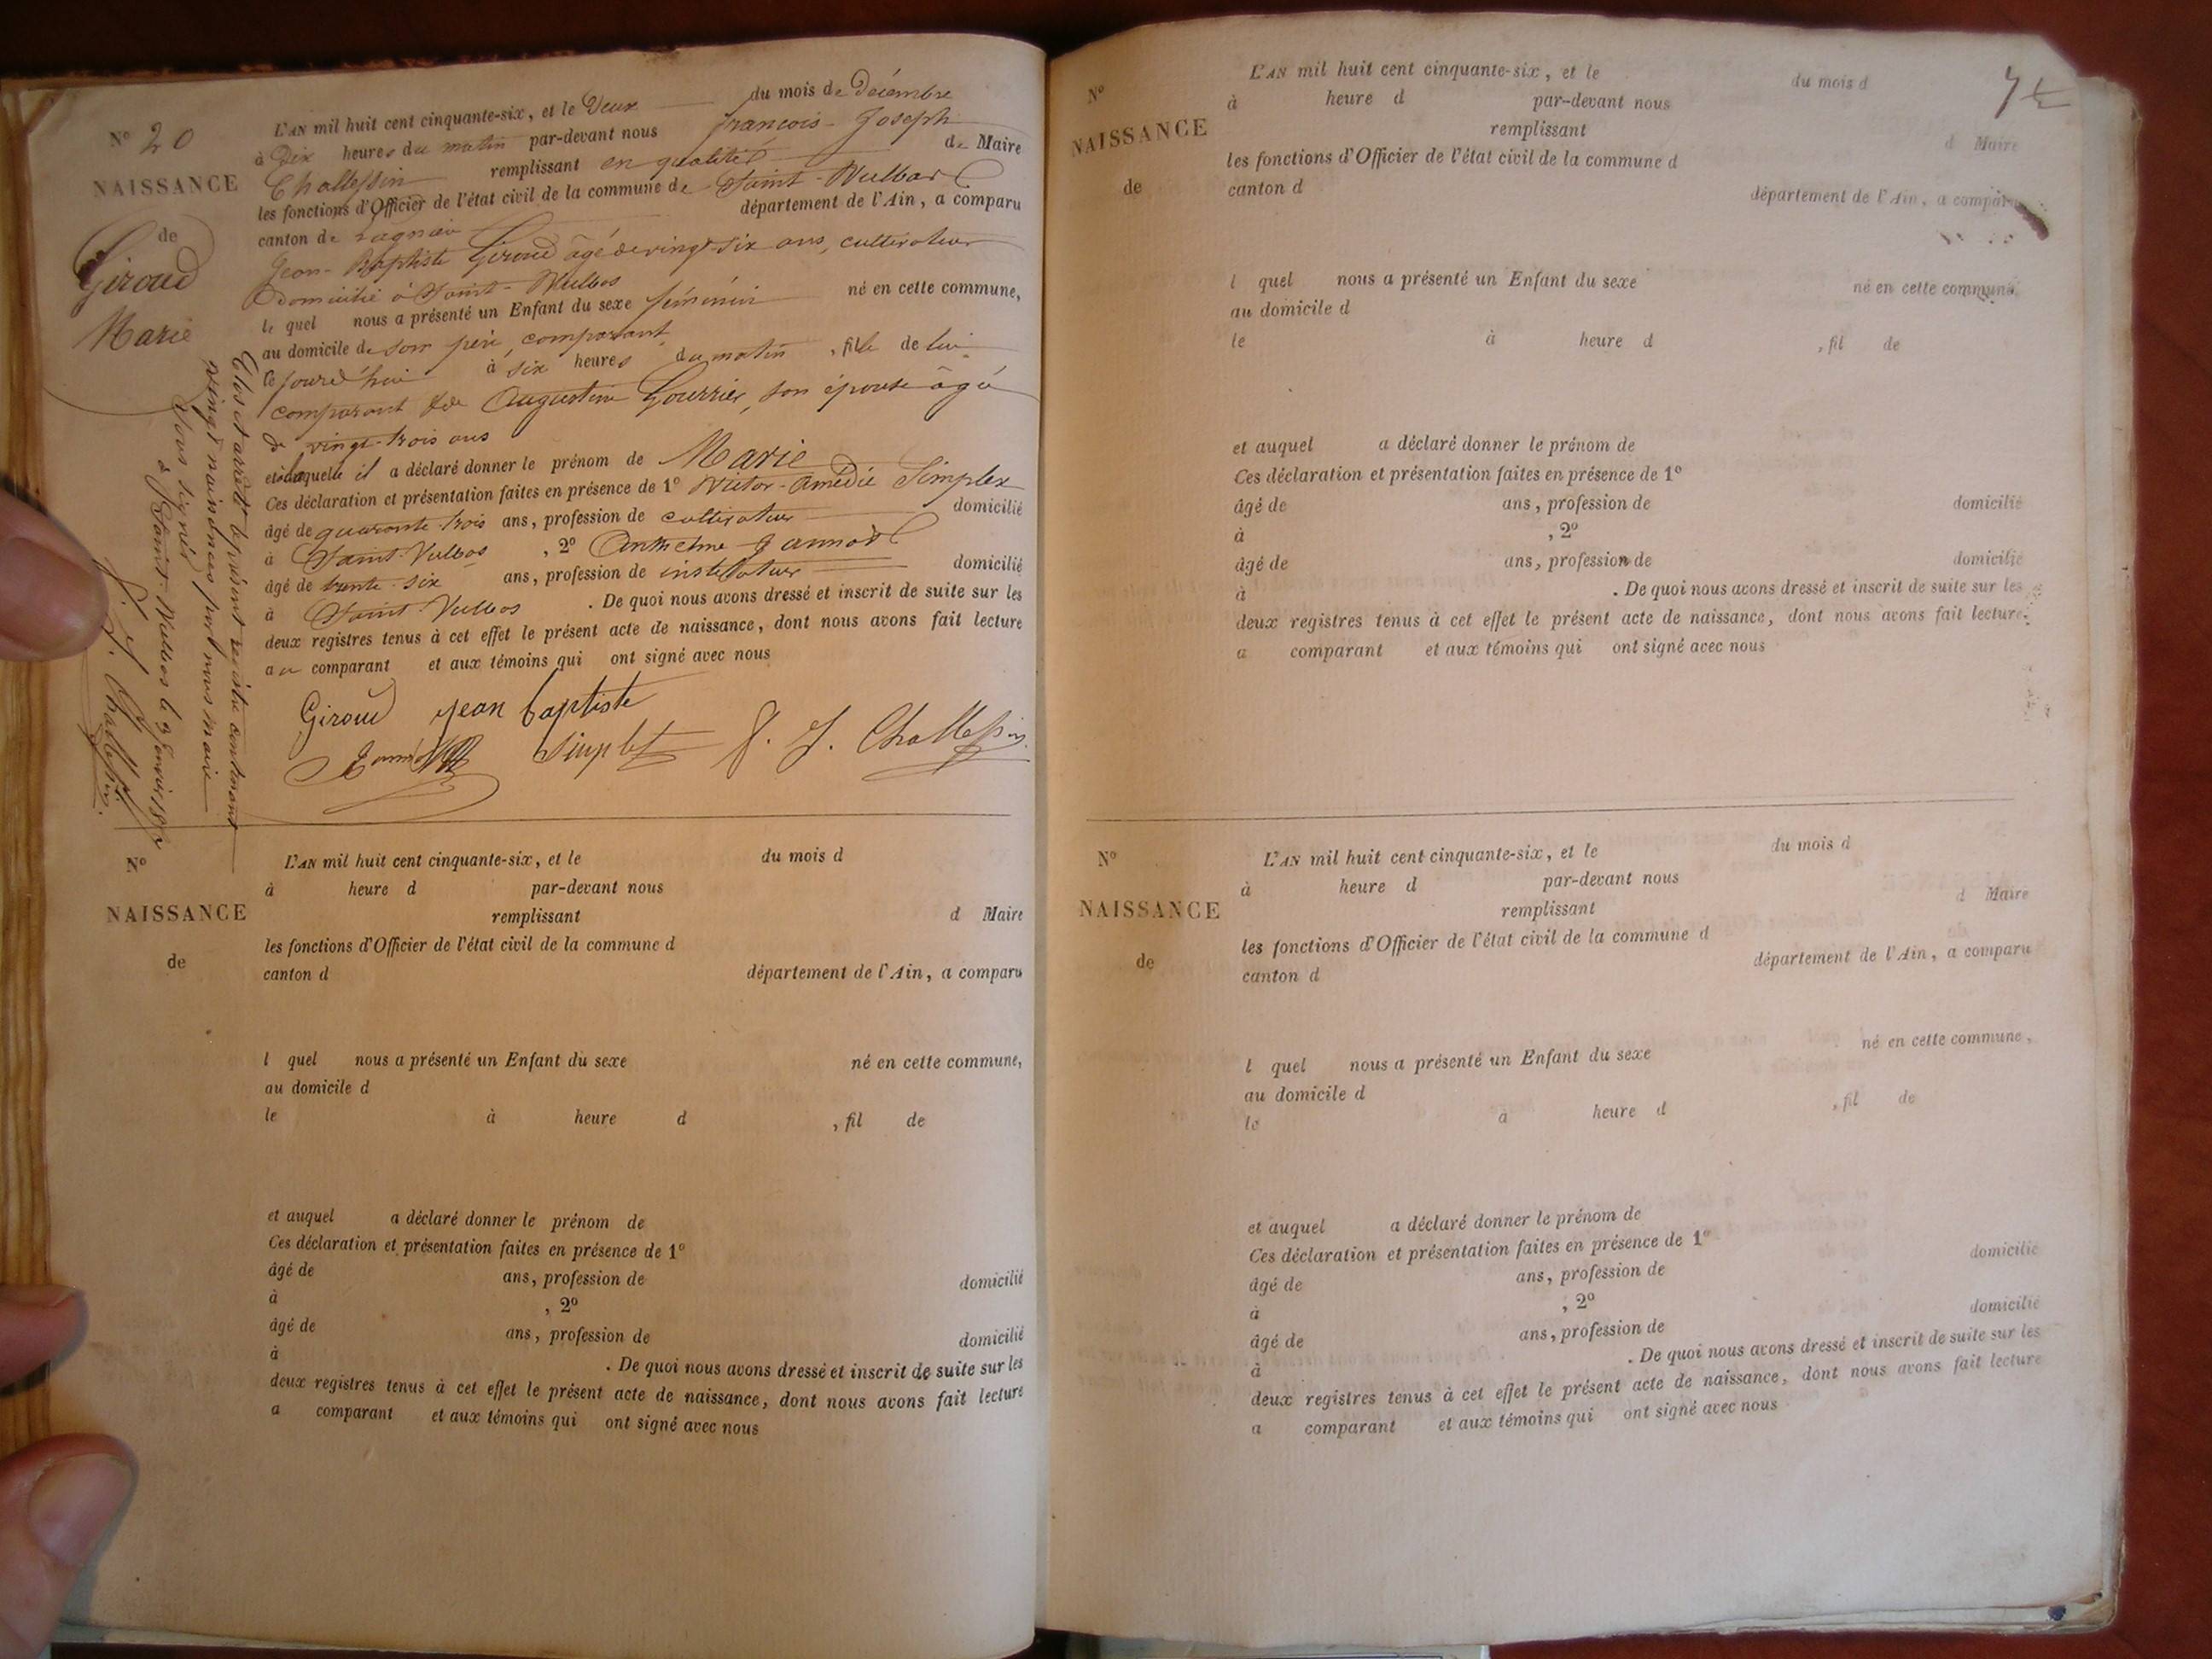 N° 20
NAISSANCE
de
Giroud
Marie
L'AN mil huit cent cinquante-six, et le Deux du mois de Décembre
à Dix heures du matin par-devant nous françois-Joseph
Challessin remplissant en qualité de Maire
les fonctions d'Officier de l'état civil de la commune de Saint-Wulbas
canton de Lagnieu département de l'Ain, a comparu
Jean-Baptiste Giroud âgé de vingt-six ans, cultivateur
domicilié à Saint-Wulbas
le quel nous a présenté un Enfant du sexe féminin né en cette commune,
au domicile de son père, comparant,
le jourd'hui à six heures du matin, fille de lui
comparant & de Augustine Gourrier, son épouse âgée
de vingt-trois ans
et à laquelle il a déclaré donner le prénom de Marie
Ces déclaration et présentation faites en présence de 1° Victor-Amédié Simplex
âgé de quarante-trois ans, profession de cultivateur domicilié
à Saint-Vulbas, 2° Anthelme Jannod
âgé de trente-six ans, profession de instituteur domicilié
à Saint-Vulbas. De quoi nous avons dressé et inscrit de suite sur les
deux registres tenus à cet effet le présent acte de naissance, dont nous avons fait lecture
au comparant et aux témoins qui ont signé avec nous
Giroud jean baptiste
Simplex F. J. Challessin
Clos et arrêté le présent registre contenant
vingt naissances par nous maire
sous signé
à Saint-Wulbas le janvier 1857
F. J. Challessin
N°
NAISSANCE
de
L'AN mil huit cent cinquante-six, et le du mois d
à heure d par-devant nous
remplissant d Maire
les fonctions d'Officier de l'état civil de la commune d
canton d département de l'Ain, a comparu
l quel nous a présenté un Enfant du sexe né en cette commune,
au domicile d
le à heure d , fil de
et auquel a déclaré donner le prénom de
Ces déclaration et présentation faites en présence de 1°
âgé de ans, profession de domicilié
à , 2°
âgé de ans, profession de domicilié
à . De quoi nous avons dressé et inscrit de suite sur les
deux registres tenus à cet effet le présent acte de naissance, dont nous avons fait lecture
a comparant et aux témoins qui ont signé avec nous
N°
NAISSANCE
de
L'AN mil huit cent cinquante-six, et le du mois d
à heure d par-devant nous
remplissant d Maire
les fonctions d'Officier de l'état civil de la commune d
canton d département de l'Ain, a comparu
l quel nous a présenté un Enfant du sexe né en cette commune,
au domicile d
le à heure d , fil de
et auquel a déclaré donner le prénom de
Ces déclaration et présentation faites en présence de 1°
âgé de ans, profession de domicilié
à , 2°
âgé de ans, profession de domicilié
à . De quoi nous avons dressé et inscrit de suite sur les
deux registres tenus à cet effet le présent acte de naissance, dont nous avons fait lecture
a comparant et aux témoins qui ont signé avec nous
N°
NAISSANCE
de
L'AN mil huit cent cinquante-six, et le du mois d
à heure d par-devant nous
remplissant d Maire
les fonctions d'Officier de l'état civil de la commune d
canton d département de l'Ain, a comparu
l quel nous a présenté un Enfant du sexe né en cette commune,
au domicile d
le à heure d , fil de
et auquel a déclaré donner le prénom de
Ces déclaration et présentation faites en présence de 1°
âgé de ans, profession de domicilié
à , 2°
âgé de ans, profession de domicilié
à . De quoi nous avons dressé et inscrit de suite sur les
deux registres tenus à cet effet le présent acte de naissance, dont nous avons fait lecture
a comparant et aux témoins qui ont signé avec nous